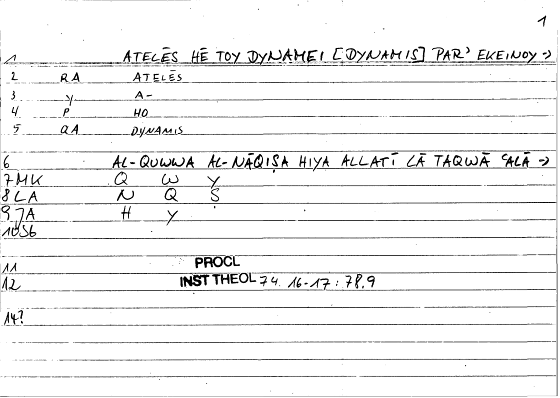 1
1 ATELĒS HĒ TOY DYNAMEI [DYNAMIS] PAR' EKEINOY →
2 RA ATELĒS
3 Y A-
4 P HO
5 QA DYNAMIS
6 AL-QUWWA AL-NĀQIṢA HIYA ALLATĪ LĀ TAQWĀ ʿALĀ →
7 MK Q W Y
8 LA N Q Ṣ
9 JA H Y
10 56
11 PROCL
12 INST THEOL 74. 16-17 : 78.9
14?